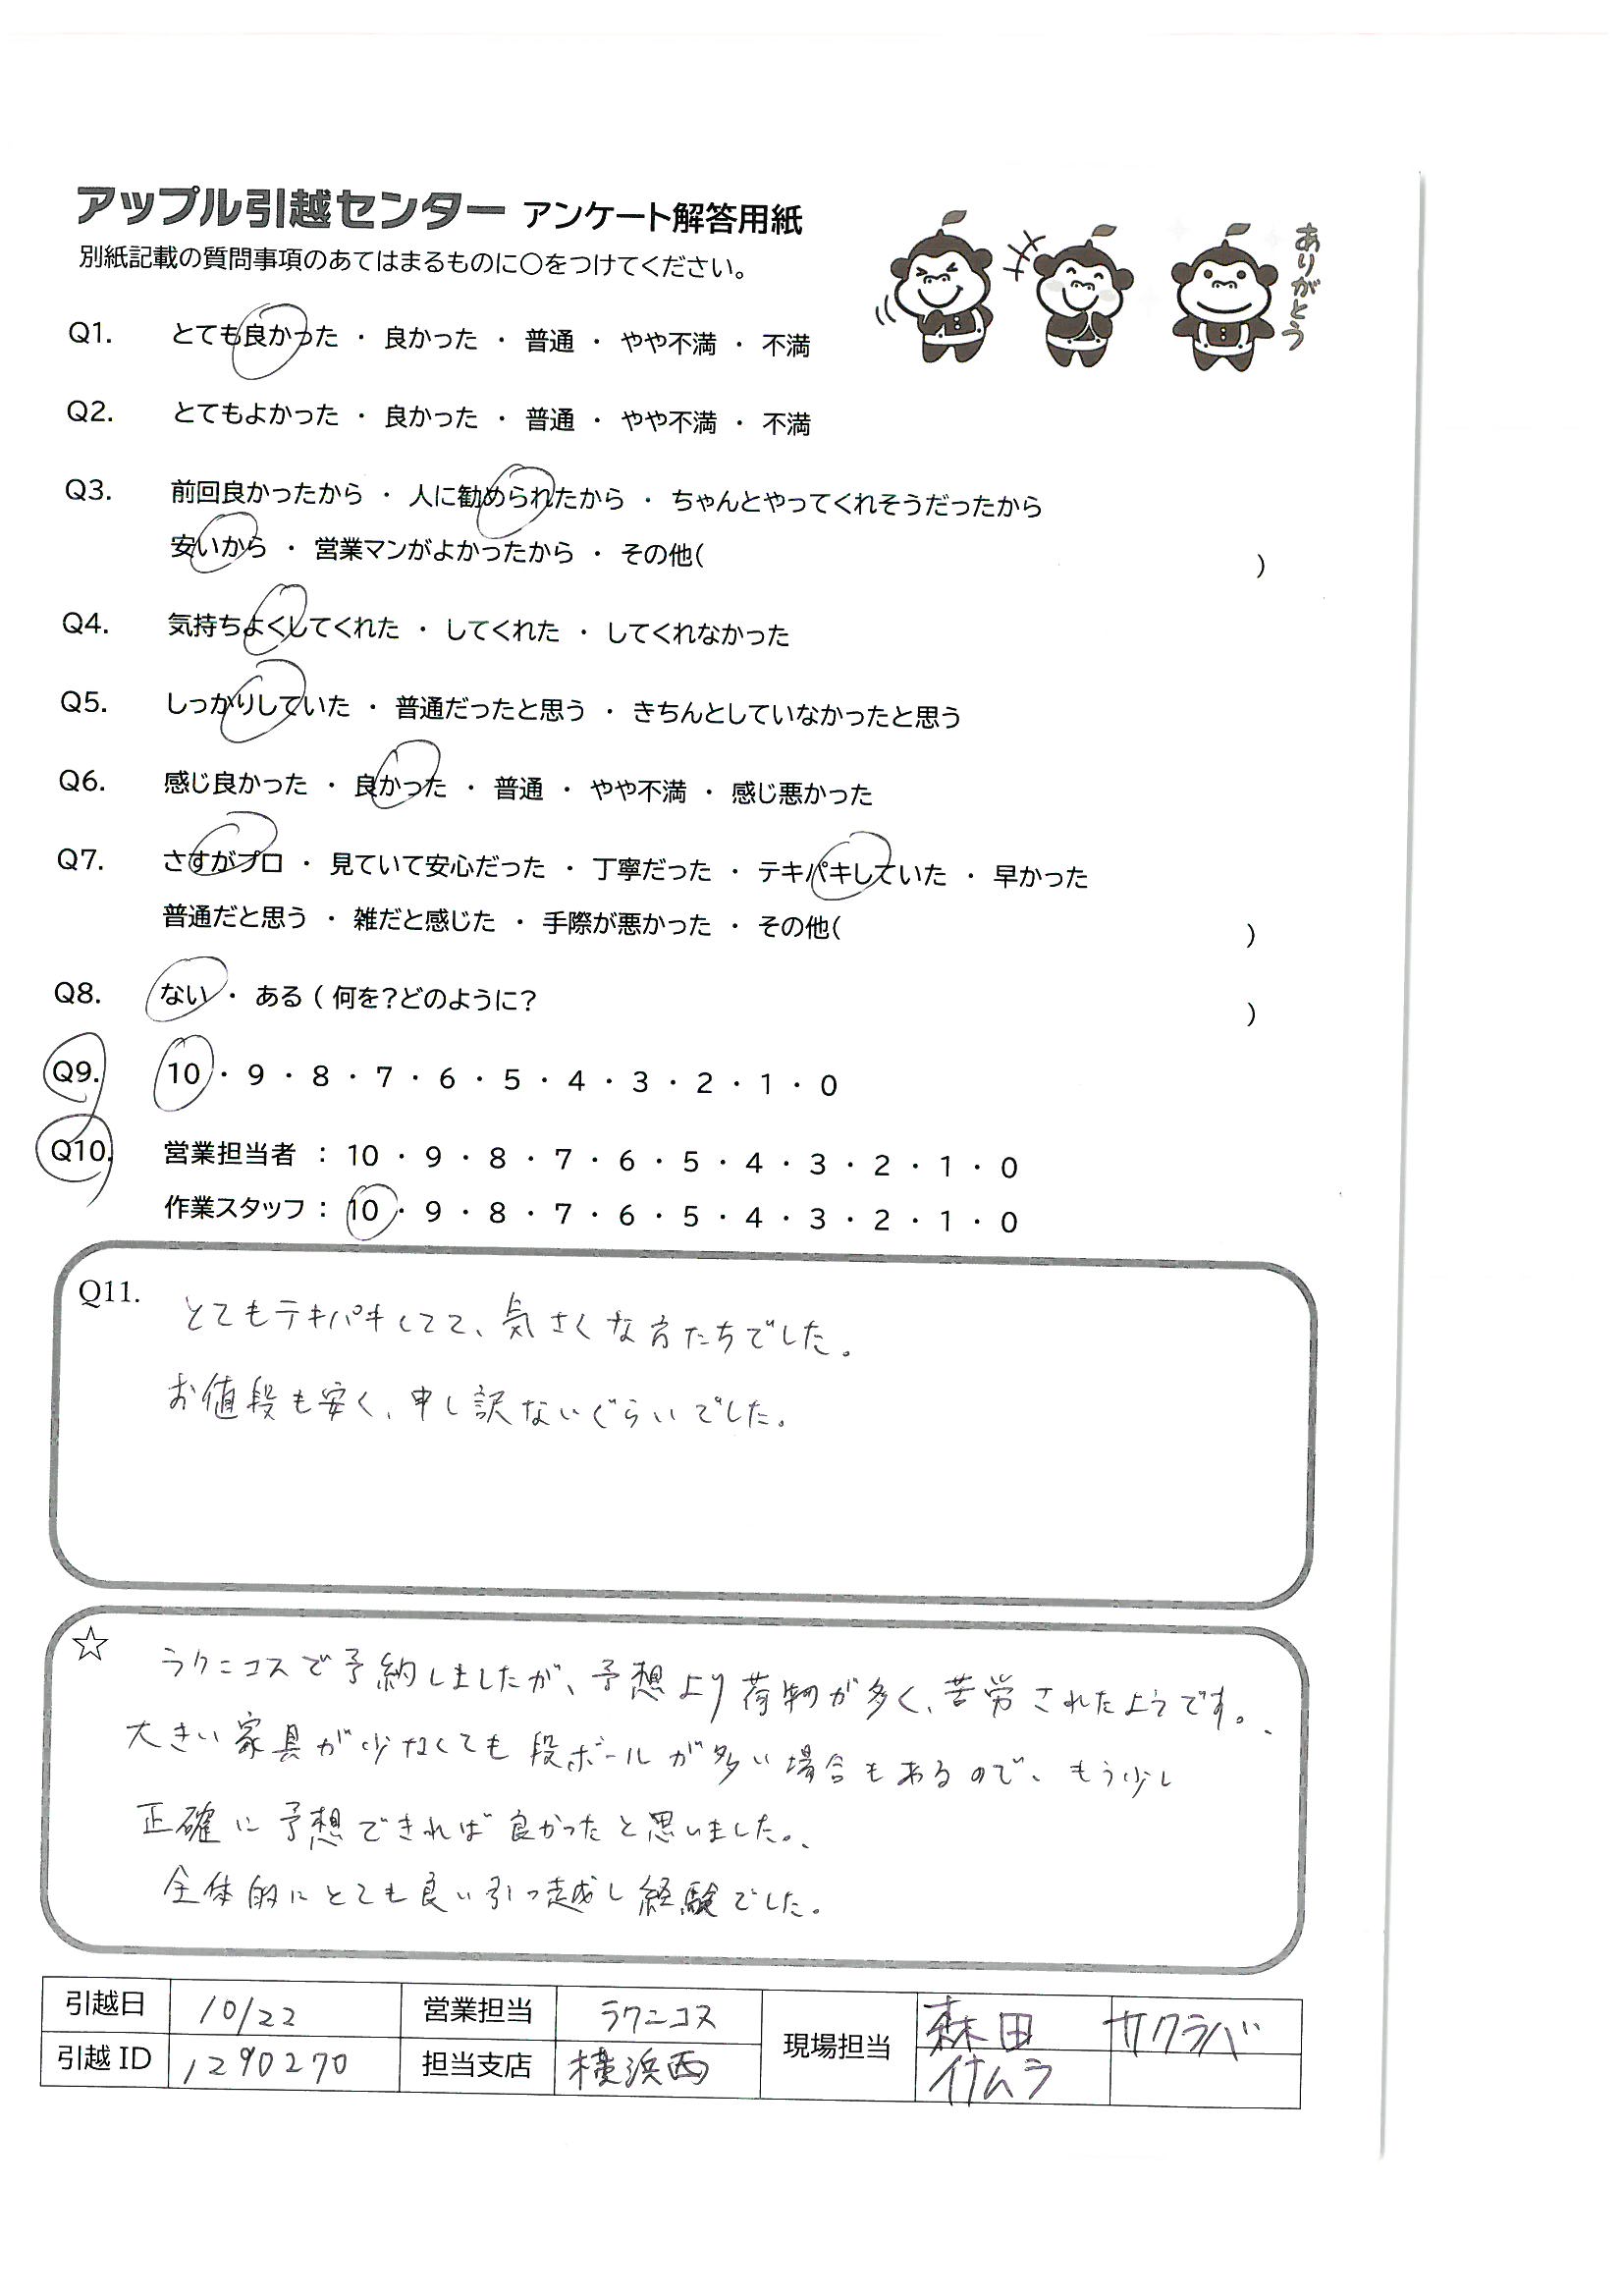 アップル引越センター アンケート解答用紙
別紙記載の質問事項のあてはまるものに○をつけてください。
ありがとう
Q1. とても良かった ・ 良かった ・ 普通 ・ やや不満 ・ 不満
Q2. とてもよかった ・ 良かった ・ 普通 ・ やや不満 ・ 不満
Q3. 前回良かったから ・ 人に勧められたから ・ ちゃんとやってくれそうだったから
安いから ・ 営業マンがよかったから ・ その他( )
Q4. 気持ちよくしてくれた ・ してくれた ・ してくれなかった
Q5. しっかりしていた ・ 普通だったと思う ・ きちんとしていなかったと思う
Q6. 感じ良かった ・ 良かった ・ 普通 ・ やや不満 ・ 感じ悪かった
Q7. さすがプロ ・ 見ていて安心だった ・ 丁寧だった ・ テキパキしていた ・ 早かった
普通だと思う ・ 雑だと感じた ・ 手際が悪かった ・ その他( )
Q8. ない ・ ある ( 何を?どのように? )
Q9. 10 ・ 9 ・ 8 ・ 7 ・ 6 ・ 5 ・ 4 ・ 3 ・ 2 ・ 1 ・ 0
Q10. 営業担当者 : 10 ・ 9 ・ 8 ・ 7 ・ 6 ・ 5 ・ 4 ・ 3 ・ 2 ・ 1 ・ 0
作業スタッフ : 10 ・ 9 ・ 8 ・ 7 ・ 6 ・ 5 ・ 4 ・ 3 ・ 2 ・ 1 ・ 0
Q11. とてもテキパキしてて、気さくな方たちでした。
お値段も安く、申し訳ないぐらいでした。
☆ ラクニコスで予約しましたが、予想より荷物が多く、苦労されたようです。
大きい家具が少なくても段ボールが多い場合もあるので、もう少し
正確に予想できれば良かったと思いました。
全体的にとても良い引っ越し経験でした。
引越日 10/22 営業担当 ラクニコス 現場担当 森田 サクラバ
引越 ID 1290270 担当支店 横浜西 イナムラ